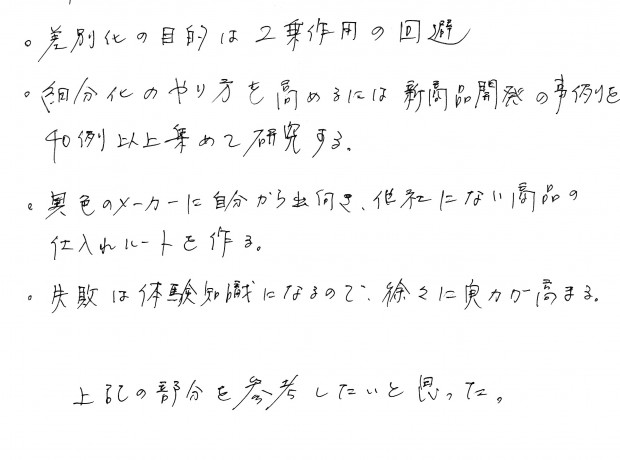 。差別化の目的は2乗作用の回避
。細分化のやり方を高めるには新商品開発の事例を
40例以上集めて研究する。
。異色のメーカーに自分から出向き、他社にない商品の
仕入れルートを作る。
。失敗は体験知識になるので、徐々に実力が高まる。
上記の部分を参考したいと思った。